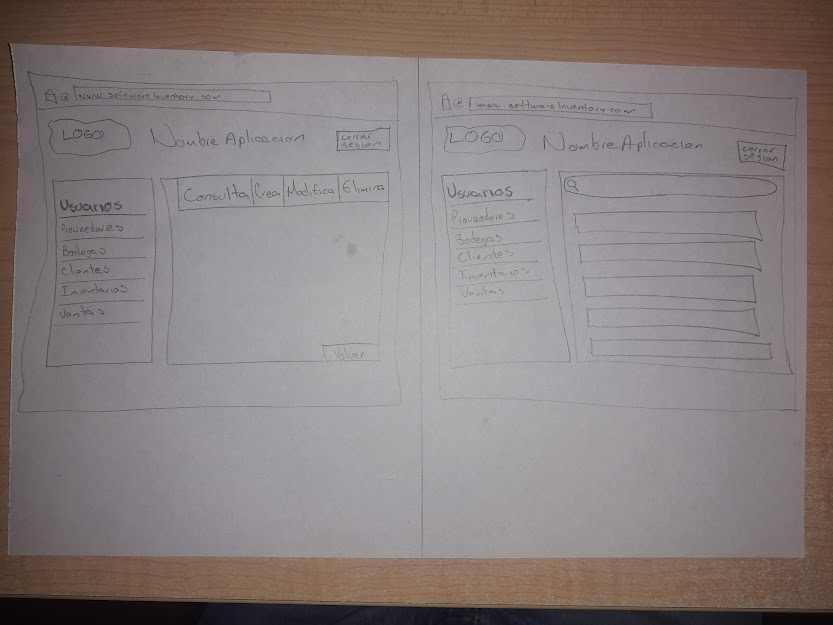 www.softwareInventory.com
LOGO
Nombre Aplicacion
cerrar
sesion
Usuarios
Proveedores
Bodegas
Clientes
Inventarios
Ventas
Consulta Crea Modifica Elimina
Volver
www.softwareInventory.com
LOGO
Nombre Aplicacion
cerrar
sesion
Usuarios
Proveedores
Bodegas
Clientes
Inventarios
Ventas